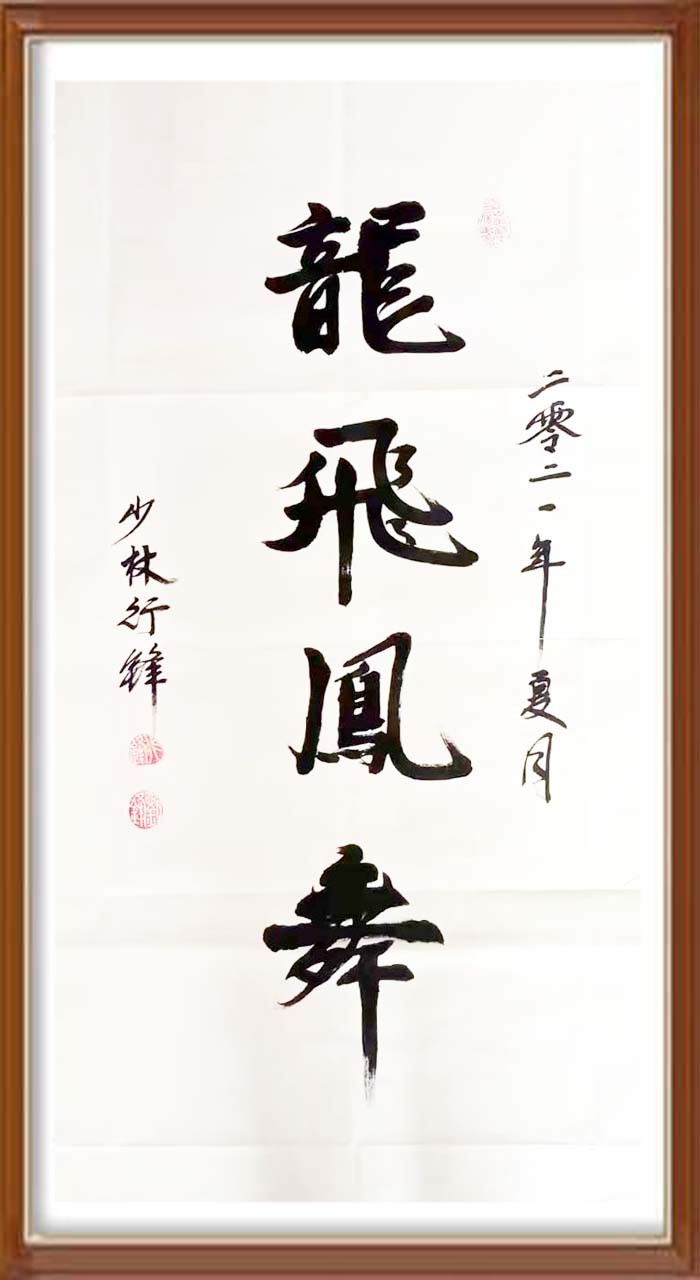 二零二一年夏月
龍飛鳳舞
少林行鋒